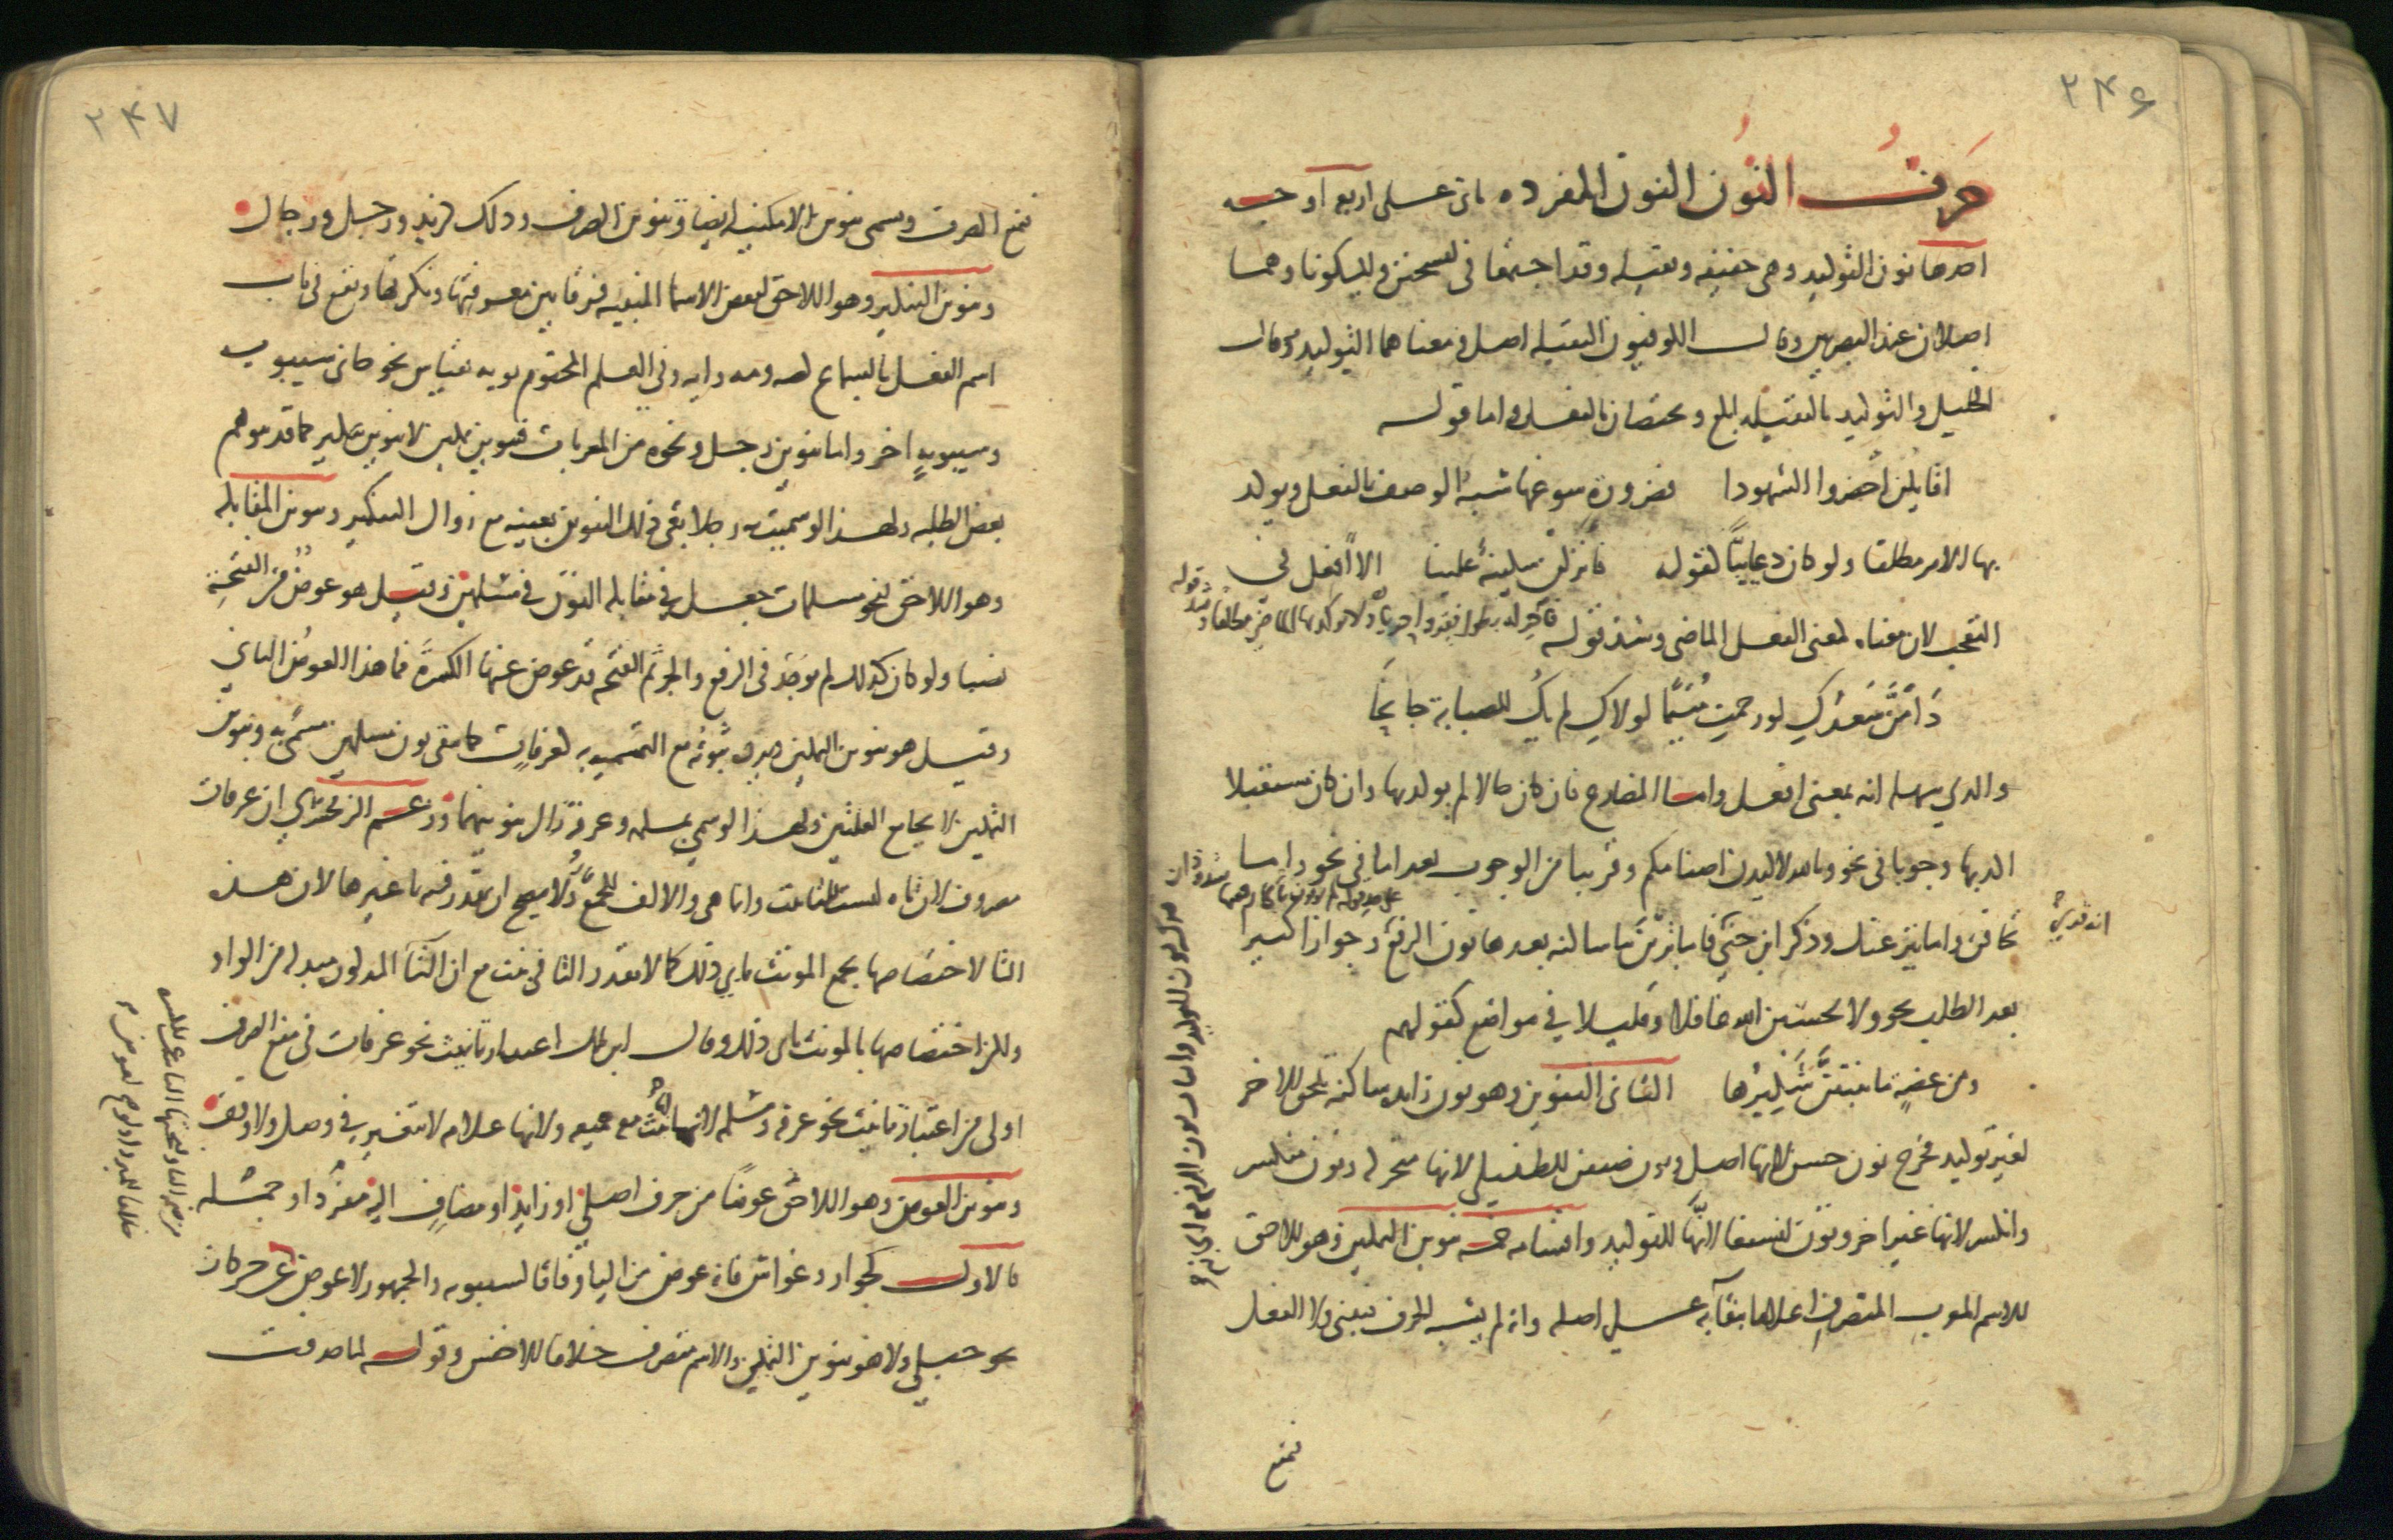 ٢٤٦
حرف النون النون المفرده تاتى على اربعة اوجه
احدها نون التوكيد وهى خفيفه وثقيله وقد اجتمعا فى ليسجنن وليكونا وهما
اصلان عند البصريين وقال الكوفيون الثقيله اصل ومعناهما التوكيد وقال
الخليل والتوكيد بالثقيله ابلغ ويختصان بالفعل واما قوله
اقايلن احضروا الشهودا فضرورة سوغها شبه الوصف بالفعل ويوكد
بها الامر مطلقا ولو كان دعاييا كقوله فانزلن سكينة علينا الا افعل فى
التعجب لان معناه لمعنى الفعل الماضى وشذ قوله فاحر به بطول فقر واحريا ولا يوكد بها الماضى مطلقا وشذ قوله
دَامَنَّ سعدكِ لو رحمتِ متيمًا لولاكِ لم يكُ للصبابة جانحًا
والذي سهله انه بمعنى افعل واما المضارع فان كان حالا لم يوكد بها وان كان مستقبلا
اكد بها وجوبا فى نحو وتالله لاكيدن اصنامكم وقريبا من الوجوب بعد اما فى نحو واما
تخافن واما ينزغنك وذكر ابن جنى انه قرئ فاما ترين بيا ساكنة بعدها نون الرفع وجوازا كثيرا
بعد الطلب نحو ولا تحسبن الله غافلا وقليلا فى مواضع كقولهم
ومن عضةٍ ما ينبتنّ شكيرها الثانى التنوين وهو نون زايده ساكنة تلحق الاخر
لغير توكيد فخرج نون حسن لانها اصل ونون ضيفن للطفيلى لانها متحركه ونون منكسر
وانكسر لانها غير اخر ونون لنسفعا لانّها للتوكيد واقسامه خمسه تنوين التمكين وهو اللاحق
للاسم المعرب المنصرف اعلاما ببقآيه على اصله وانه لم يشبه الحرف فيبنى ولا الفعل
فيمنع
٢٤٧
فيمنع الصرف ويسمى تنوين الامكنيه ايضا وتنوين الصرف وذلك كزيد ورجل ورجال
وتنوين التنكير وهو اللاحق لبعض الاسما المبنيه فرقا بين معرفتها ونكرتها ويقع فى باب
اسم الفعل بالسماع كصه ومه وايه وفى العلم المختوم بويه بقياس نحو جانى سيبويه
وسيبويهٍ اخر واما تنوين رجل ونحوه من المعربات فتنوين تمكين لا تنوين تنكير كما قد يتوهم
بعض الطلبه ولهذا لو سميت به رجلا بقى ذلك التنوين بعينه مع زوال التنكير وتنوين المقابله
وهو اللاحق لنحو مسلمات جعل فى مقابله النون فى مسلمين وقيل هو عوض من الفتحة
نصبا ولو كان كذلك لم يوجد فى الرفع والجر ثم الفتحه قد عوض عنها الكسرة فما هذا العوض الثانى
وقيل هو تنوين التمكين ويرده ثبوته مع التسميه به كعرفات كما تبقى نون مسلمين مسمى به وتنوين
التمكين لا يجامع العلتين ولهذا لو سمى بمسلمه وعرفه زال تنوينهما وزعم الزمخشري ان عرفات
مصروف لان تاه ليست للتانيث وانما هى والالف للجمع ولا يصح ان يقدر فيه تا غيرها لان هذه
التا لاختصاصها بجمع المونث تابى ذلك كما لا تقدر التا فى بنت مع ان التا المذكوره مبدله من الواو
ولكن اختصاصها بالمونث يابى ذلك وقال ابن مالك اعتبار تانيث نحو عرفات فى منع الصرف
اولى من اعتبار تانيث نحو عرفه ومسلمه لانها لتانيث مع جمعيه ولانها علامه لا تتغير فى وصل ولا وقف
وتنوين العوض وهو اللاحق عوضا من حرف اصلي او زايد او مضاف اليه مفرد او جمله
فالاول كجوار وغواش فانه عوض من اليا وفاقا لسيبويه والجمهور لا عوض عن حركات
نحو حبلي ولا هو تنوين التمكين والاسم منصرف خلافا للاخفش وقوله لما حذفت